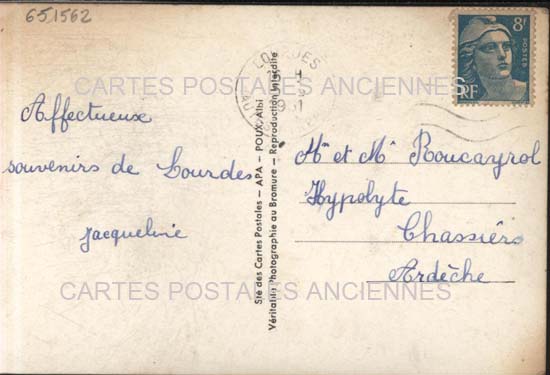 651562
8F
POSTES
RF
LOURDES
CARTES POSTALES ANCIENNES
Affectueux
souvenirs de Lourdes
Jacqueline
Sté des Cartes Postales – APA – POUX, Albi
Véritable Photographie au Bromure – Reproduction Interdite
Mr et Me Roucayrol
Hypolyte
Chassiers
Ardèche
CARTES POSTALES ANCIENNES